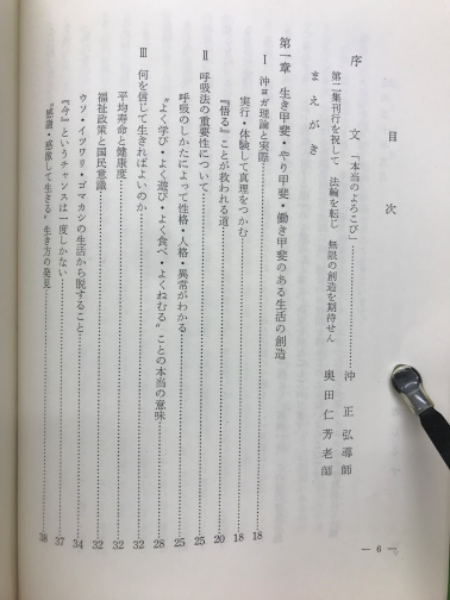 目次
序文「本当のよろこび」……沖正弘導師
第二集刊行を祝して 法輪を転じ 無限の創造を期待せん 奥田仁芳老師
まえがき
第一章 生き甲斐・やり甲斐・働き甲斐のある生活の創造
Ⅰ 沖ヨガ理論と実際……18
実行・体験して真理をつかむ……18
『悟る』ことが救われる道……20
Ⅱ 呼吸法の重要性について……25
呼吸のしかたによって性格・人格・異常がわかる……25
“よく学び・よく遊び・よく食べ・よくねむる”ことの本当の意味……28
Ⅲ 何を信じて生きればよいのか……32
平均寿命と健康度……32
福祉政策と国民意識……32
ウソ・イツワリ・ゴマカシの生活から脱すること……34
『今』というチャンスは一度しかない……37
“感謝・感激して生きる”生き方の発見……38
— 6 —